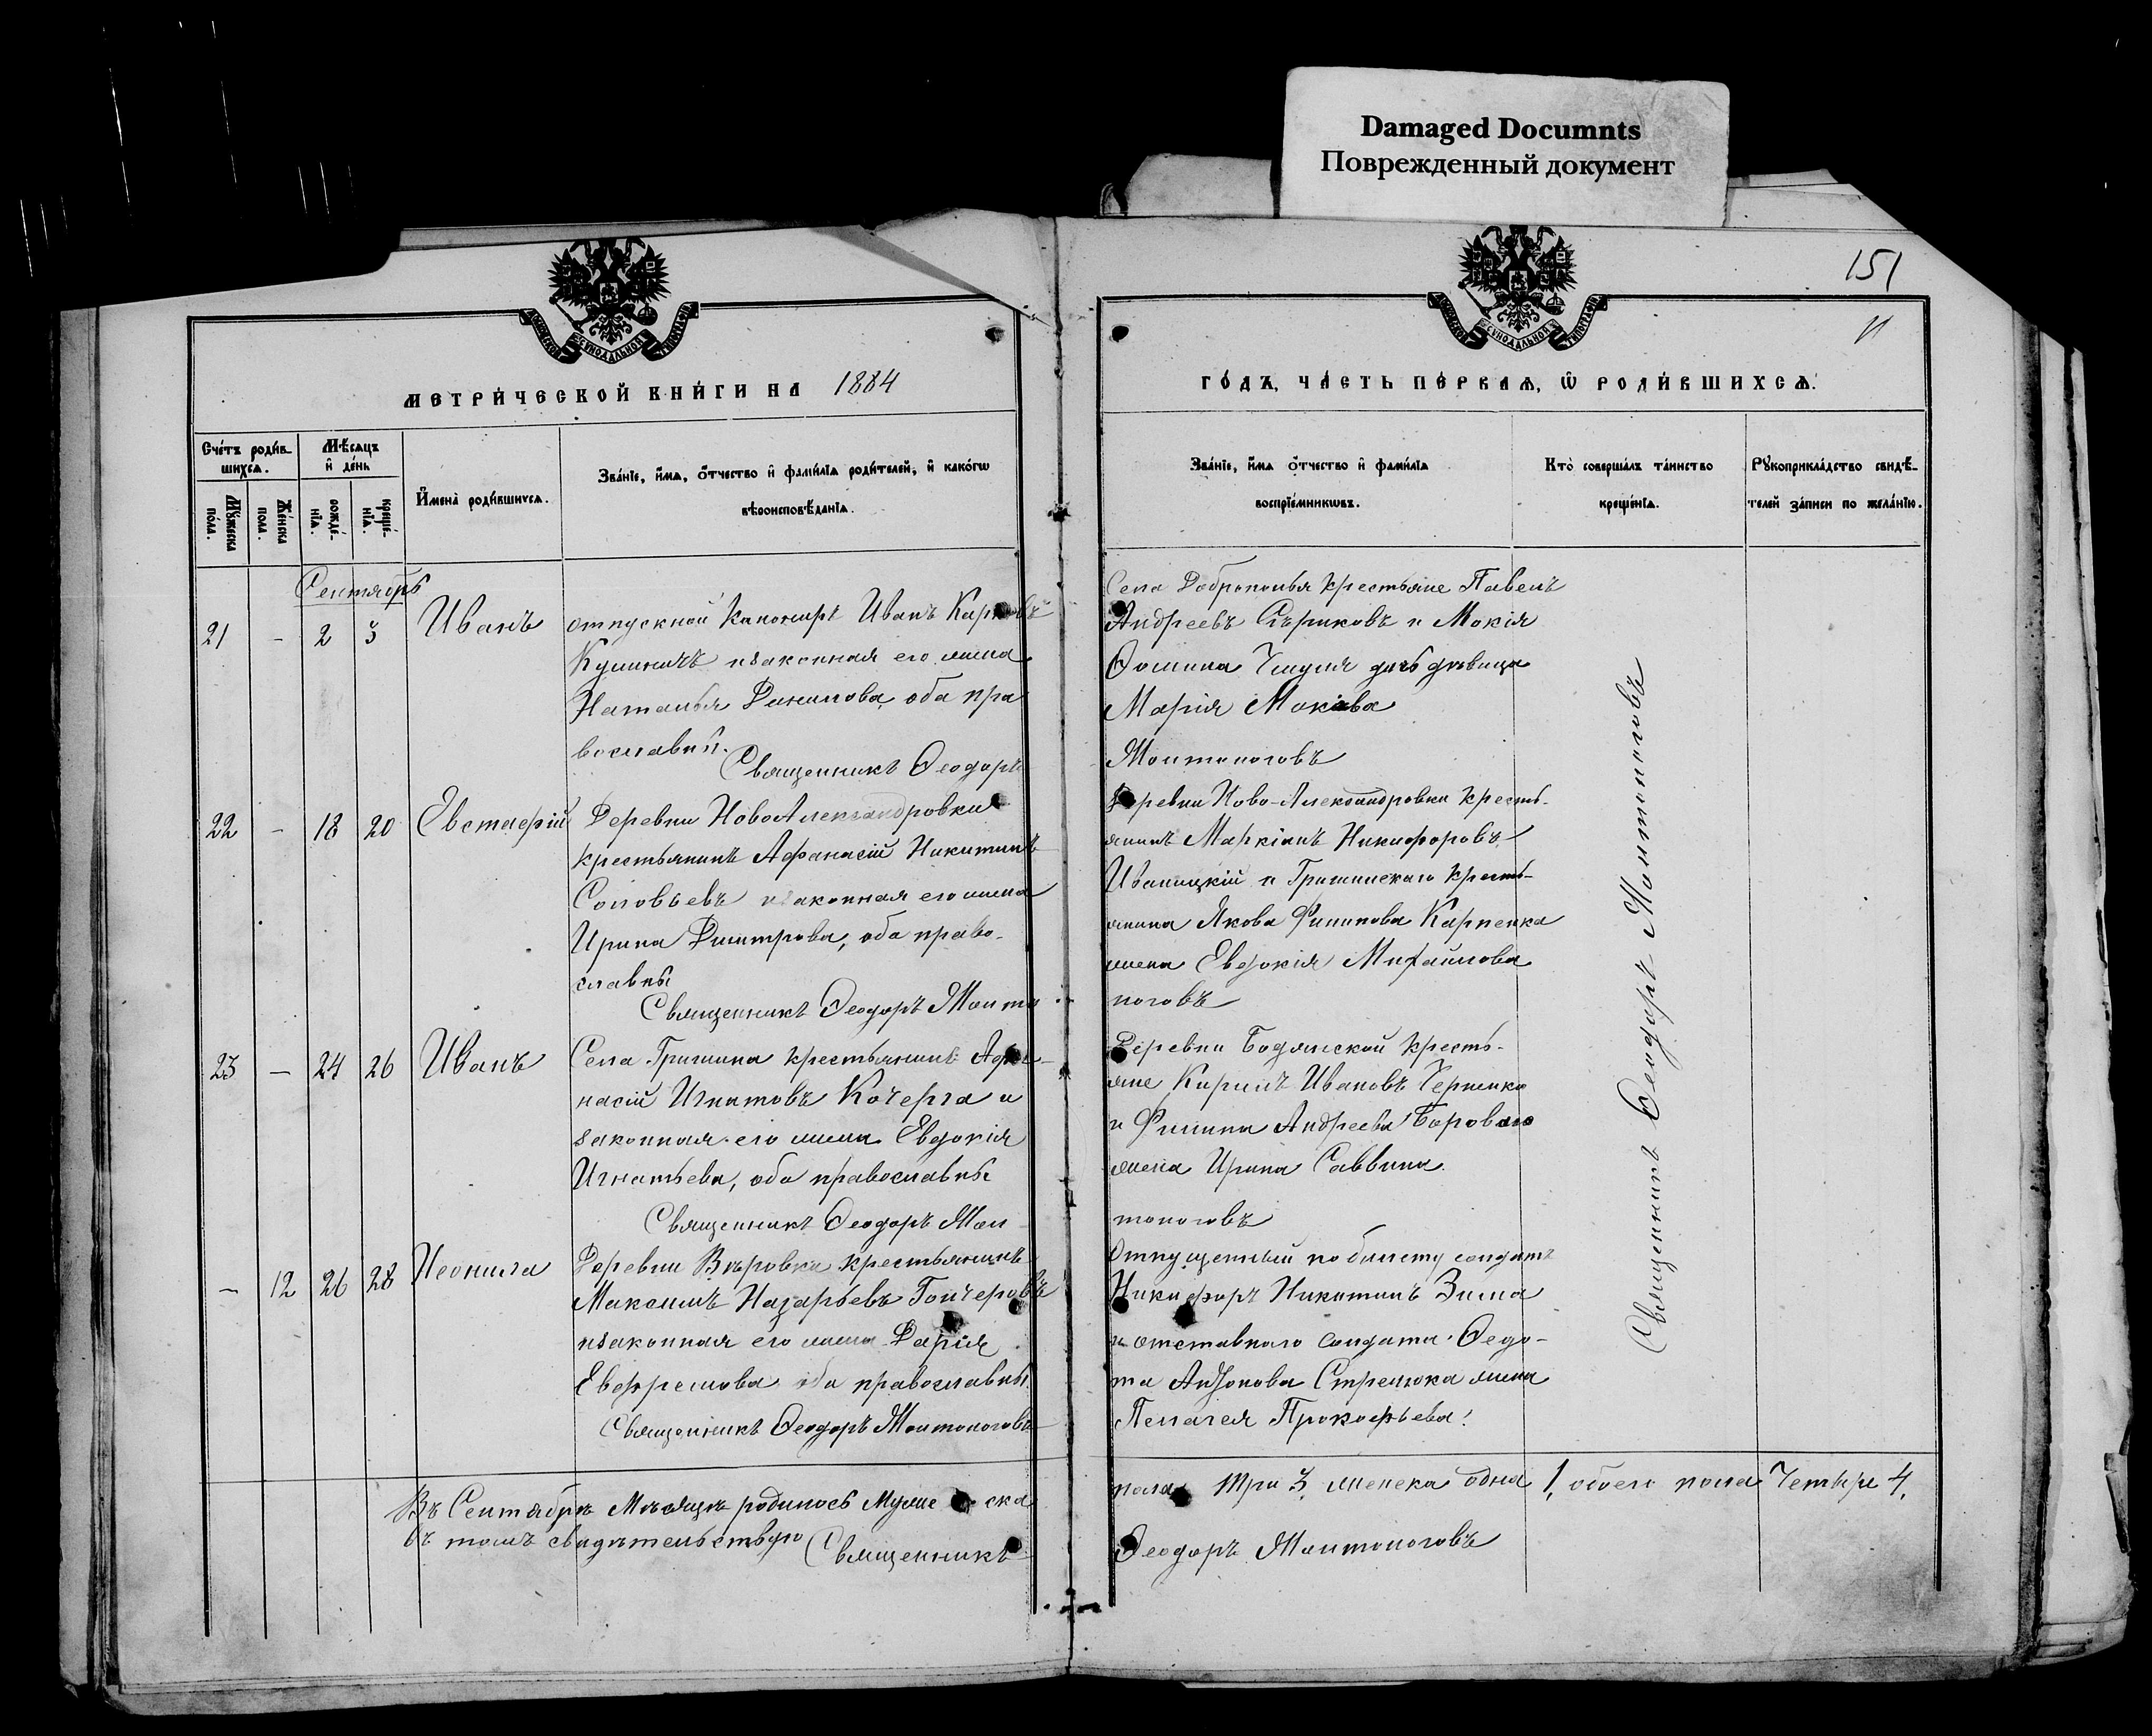 Damaged Documnts
Поврежденный документ
151
11
МЕТРИ́ЧЕСКОЙ КНИ́ГИ НА 1884
ГО́ДЪ, ЧА́СТЬ ПЕ́РВАѦ, Ѿ РОДИ́ВШИХСѦ.
Сче́тъ роди́в-
шихсѧ.
Мꙋ́жеска по́ла.
Же́нска пола.
Мѣ́сѧцъ и҆ де́нь
рожде́-
нїѧ.
креще́-
нїѧ.
И҆мена̀ роди́вшихсѧ.
Зва́нїе, и҆́мѧ, ѻ҆́тчество и҆ фами́лїѧ роди́телей, и҆ како́гѡ
вѣроисповѣ́данїѧ.
Зва́нїе, и҆́мѧ ѻ҆́тчество и҆ фами́лїѧ
воспрїе́мникѡвъ.
Кто̀ соверша́лъ та́инство
креще́нїѧ.
Рꙋкоприкла́дство свидѣ́-
телей за́писи по жела́нїю.
Сентябрь
21 - 2 3 Иванъ
отпускной Канониръ Иванъ Карповъ
изаконная его жена
Наталья Данилова, оба пра
вославны.
Священникъ Ѳеодоръ
Села Доброполья крестьяне Павелъ
Андреевъ Сѣриковъ и Мокія
Ѳомина дочь дѣвица
Марія Мокіева
Молтоноговъ
22 - 18 20 Евстафій
Деревни НовоАлександровки
крестьянинъ Афанасій Никитинъ
Соловьевъ изаконная его жена
Ирина Димитрова, оба право-
славны
Священникъ Ѳеодоръ Молто
Деревни Ново-Александровки кресть-
янинъ Маркіанъ Никифоровъ
Иваницкій и Гришинскаго кресть-
янина Якова Филипова Карпенка
жена Евдокія Михайлова
ноговъ
23 - 24 26 Иванъ
Села Гришина крестьянинъ Афа-
насій Игнатовъ Кочерга и
законная его жена Евдокія
Игнатьева, оба православны
Священникъ Ѳеодоръ Мол
Деревни Бодянской кресть-
яне Кирилъ Ивановъ Черненко
и Филипа Андреева Бороваго
жена Ирина Саввина.
тоноговъ
- 12 26 28 Неонила
Деревни Вѣровки крестьянинъ
Максимъ Назарьевъ Гончеровъ
изаконная его жена Дарія
Евфремова оба православны
Священникъ Ѳеодоръ Молтоноговъ
Отпущенный по билету солдатъ
Никифоръ Никитинъ Зима
и отставного солдата Ѳедо-
та Антонова Стрелюка жена
Пелагея Прокофьева.
Священникъ Ѳеодоръ Молтоноговъ
Въ Сентябрѣ Мѣсяцѣ родилось Муже ска
пола Три 3, женска одна 1, обоего пола Четыре 4,
въ томъ свидѣтельствую Священникъ
Ѳеодоръ Молтоноговъ